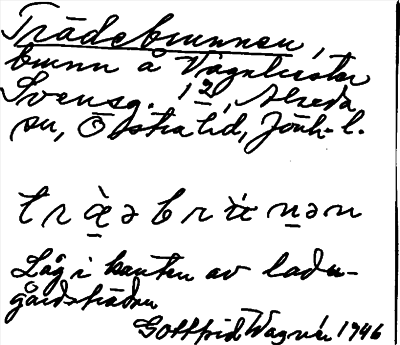 Trädebrunnen,
brunn å Vagnlister
Svensg. 1 2, Alseda
sn, Östra hd, Jönk. l.
Låg i kanten av ladu-
gårdsträdan
Gottfrid Wagnér 1946